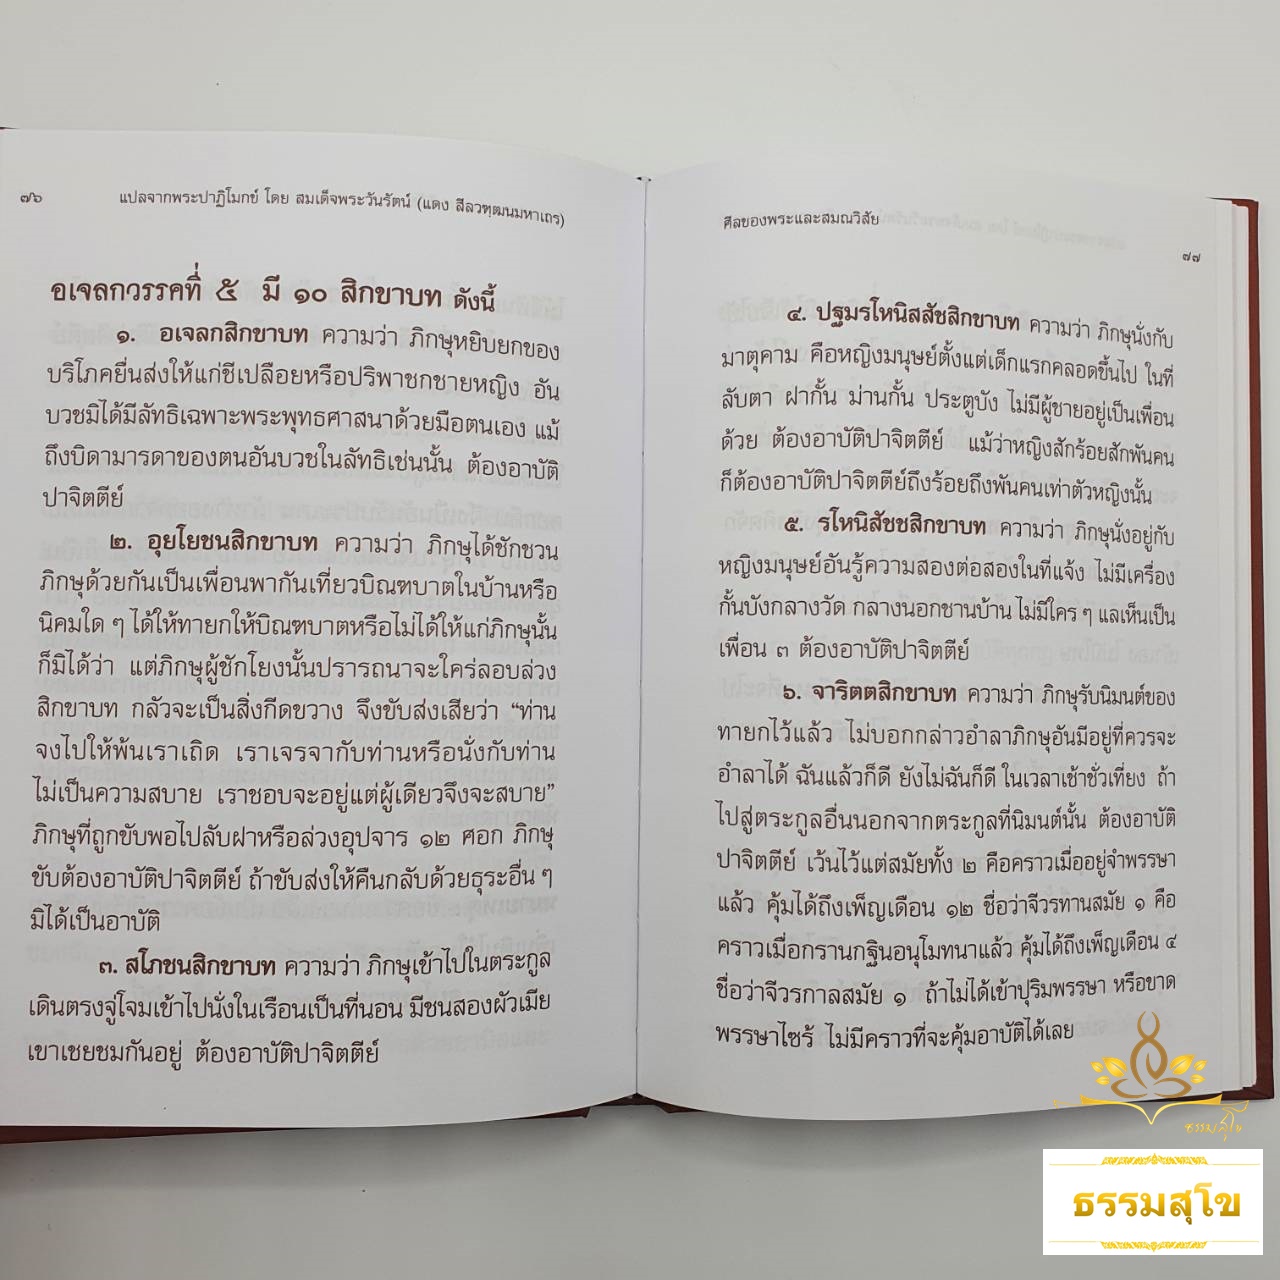 ๗๖
แปลจากพระปาฏิโมกข์ โดย สมเด็จพระวันรัตน์ (แดง สีลวฑฺฒนมหาเถร)
อเจลกวรรคที่ ๕ มี ๑๐ สิกขาบท ดังนี้
๑. อเจลกสิกขาบท ความว่า ภิกษุหยิบยกของ
บริโภคยื่นส่งให้แก่ชีเปลือยหรือปริพาชกชายหญิง อัน
บวชมิได้มีลัทธิเฉพาะพระพุทธศาสนาด้วยมือตนเอง แม้
ถึงบิดามารดาของตนอันบวชในลัทธิเช่นนั้น ต้องอาบัติ
ปาจิตตีย์
๒. อุยโยชนสิกขาบท ความว่า ภิกษุได้ชักชวน
ภิกษุด้วยกันเป็นเพื่อนพากันเที่ยวบิณฑบาตในบ้านหรือ
นิคมใด ๆ ได้ให้ทายกให้บิณฑบาตหรือไม่ได้ให้แก่ภิกษุนั้น
ก็มิได้ว่า แต่ภิกษุผู้ชักโยงนั้นปรารถนาจะใคร่ลอบล่วง
สิกขาบท กลัวจะเป็นสิ่งกีดขวาง จึงขับส่งเสียว่า “ท่าน
จงไปให้พ้นเราเถิด เราเจรจากับท่านหรือนั่งกับท่าน
ไม่เป็นความสบาย เราชอบจะอยู่แต่ผู้เดียวจึงจะสบาย”
ภิกษุที่ถูกขับพอไปลับฝาหรือล่วงอุปจาร ๑๒ ศอก ภิกษุ
ขับต้องอาบัติปาจิตตีย์ ถ้าขับส่งให้คืนกลับด้วยธุระอื่น ๆ
มิได้เป็นอาบัติ
๓. สโภชนสิกขาบท ความว่า ภิกษุเข้าไปในตระกูล
เดินตรงจู่โจมเข้าไปนั่งในเรือนเป็นที่นอน มีชนสองผัวเมีย
เขาเชยชมกันอยู่ ต้องอาบัติปาจิตตีย์
ศีลของพระและสมณวิสัย
๗๗
๔. ปฐมรโหนิสสัชสิกขาบท ความว่า ภิกษุนั่งกับ
มาตุคาม คือหญิงมนุษย์ตั้งแต่เด็กแรกคลอดขึ้นไป ในที่
ลับตา ฝากั้น ม่านกั้น ประตูบัง ไม่มีผู้ชายอยู่เป็นเพื่อน
ด้วย ต้องอาบัติปาจิตตีย์ แม้ว่าหญิงสักร้อยสักพันคน
ก็ต้องอาบัติปาจิตตีย์ถึงร้อยถึงพันคนเท่าตัวหญิงนั้น
๕. รโหนิสัชชสิกขาบท ความว่า ภิกษุนั่งอยู่กับ
หญิงมนุษย์อันรู้ความสองต่อสองในที่แจ้ง ไม่มีเครื่อง
กั้นบังกลางวัด กลางนอกชานบ้าน ไม่มีใคร ๆ แลเห็นเป็น
เพื่อน ๓ ต้องอาบัติปาจิตตีย์
๖. จาริตตสิกขาบท ความว่า ภิกษุรับนิมนต์ของ
ทายกไว้แล้ว ไม่บอกกล่าวอำลาภิกษุอันมีอยู่ที่ควรจะ
อำลาได้ ฉันแล้วก็ดี ยังไม่ฉันก็ดี ในเวลาเช้าชั่วเที่ยง ถ้า
ไปสู่ตระกูลอื่นนอกจากตระกูลที่นิมนต์นั้น ต้องอาบัติ
ปาจิตตีย์ เว้นไว้แต่สมัยทั้ง ๒ คือคราวเมื่ออยู่จำพรรษา
แล้ว คุ้มได้ถึงเพ็ญเดือน ๑๒ ชื่อว่าจีวรทานสมัย ๑ คือ
คราวเมื่อกรานกฐินอนุโมทนาแล้ว คุ้มได้ถึงเพ็ญเดือน ๔
ชื่อว่าจีวรกาลสมัย ๑ ถ้าไม่ได้เข้าปุริมพรรษา หรือขาด
พรรษาไซร้ ไม่มีคราวที่จะคุ้มอาบัติได้เลย
ธรรมสุโข
ธรรมสุโข